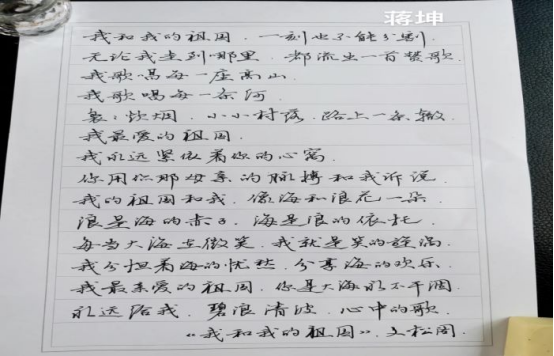 蒋坤
我和我的祖国．一刻也不能分割
无论我走到哪里．都流出一首赞歌．
我歌唱每一座高山
我歌唱每一条河
袅袅炊烟．小小村落．路上一条辙．
我最爱的祖国．
我永远紧依着你的心窝
你用你那母亲的脉搏和我诉说
我的祖国和我．像海和浪花一朵
浪是海的赤子．海是浪的依托
每当大海在微笑．我就是笑的旋涡
我分担着海的忧愁．分享海的欢乐
我最亲爱的祖国．你是大海永不干涸．
永远给我．碧浪清波．心中的歌．
"我和我的祖国"．